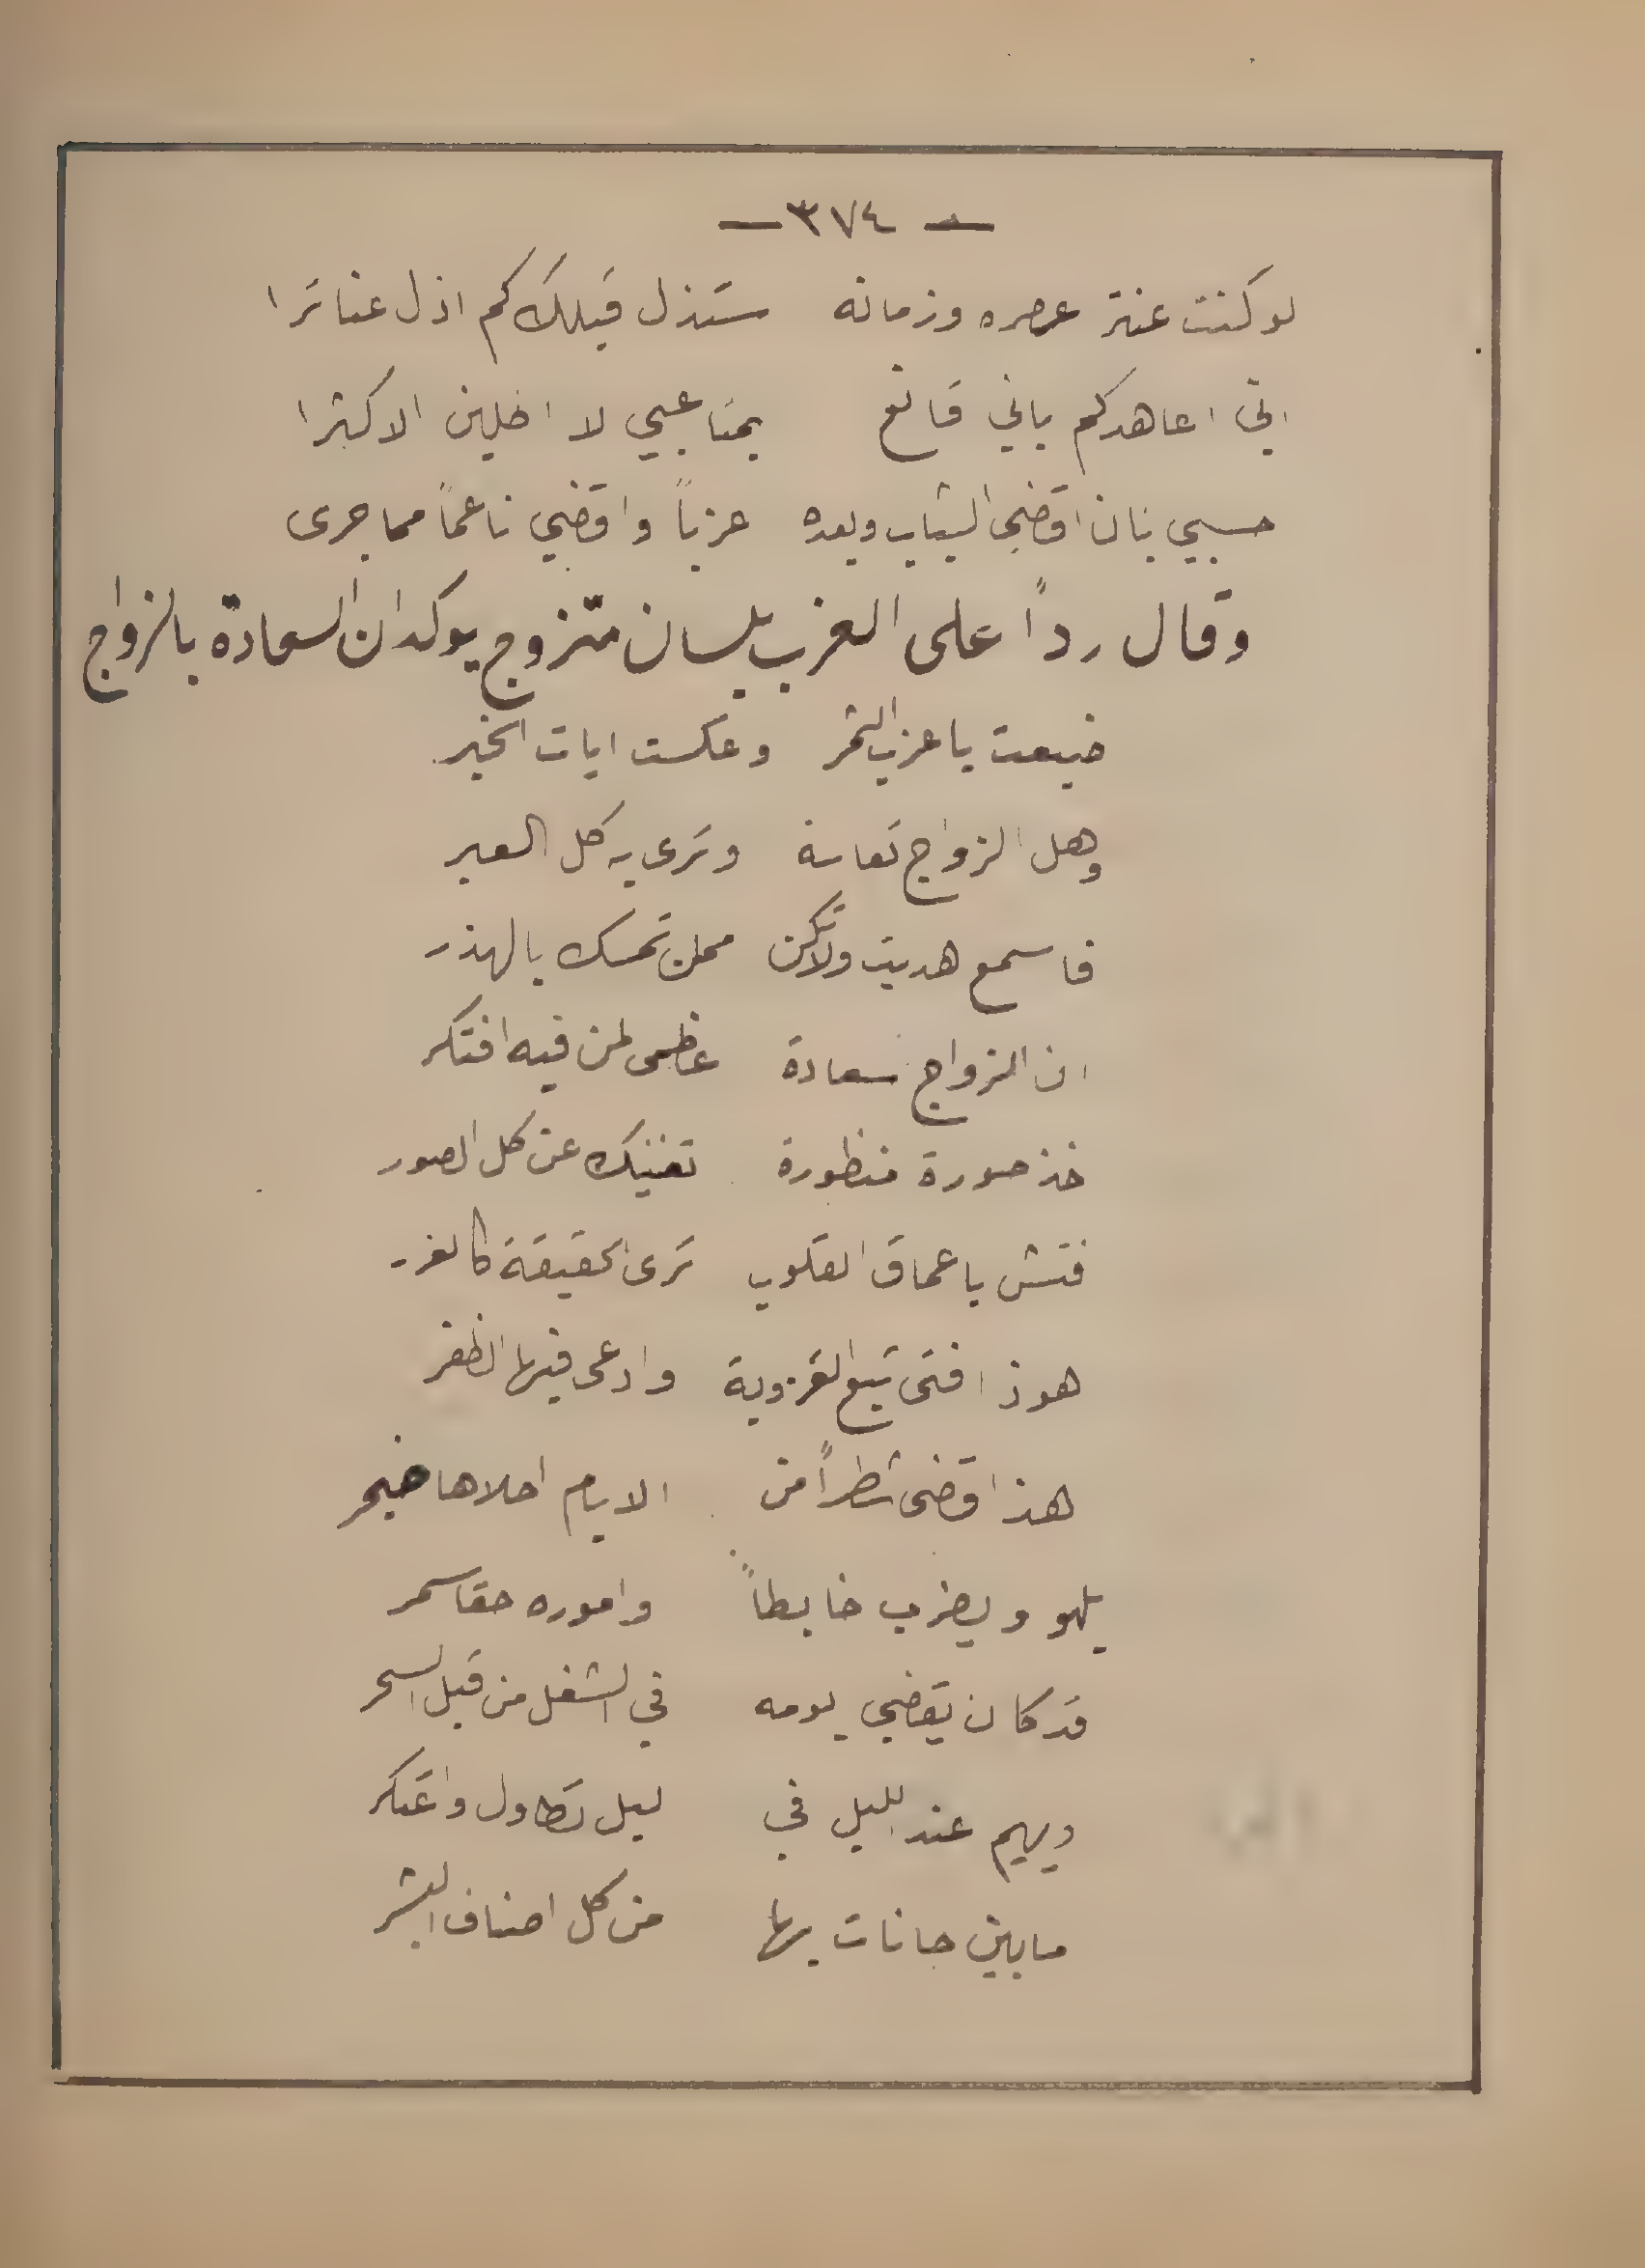 — ٣٧٤ —
لو كنت عنتر عصره وزمانه ستذل قبلك كم اذل عناترا
اني اعاهدكم باني قانع بمتاعبي لا اطلبن الاكثرا
حسبي بان اقضي الشباب وبعده عزباً واقضي ناعماً مما جرى
وقال رداً على العزب بلسان متزوج يوكد ان السعادة بالزواج
ضيعت يا عزب الثمر وعكست ايات الخبر
وهل الزواج تعاسة وترى به كل العبر
فاسمع هديت ولا تكن ممن تمسك بالهذر
ان الزواج سعادة عظمى لمن فيه افتكر
خذ صورة منظورة تغنيك عن كل الصور
فتش باعماق القلوب ترى الحقيقة كالغرر
هوذا فتى تبع العزوبة وادعى فيها الظفر
هذا قضى شطراً من الايام احلاها ضجر
يلهو ويضرب خابطاً واموره حقا سمر
قد كان يقضي يومه في الشغل من قبل السحر
ويهيم عند الليل في ليل تطاول واعتكر
ما بين حانات بها من كل اصناف البشر